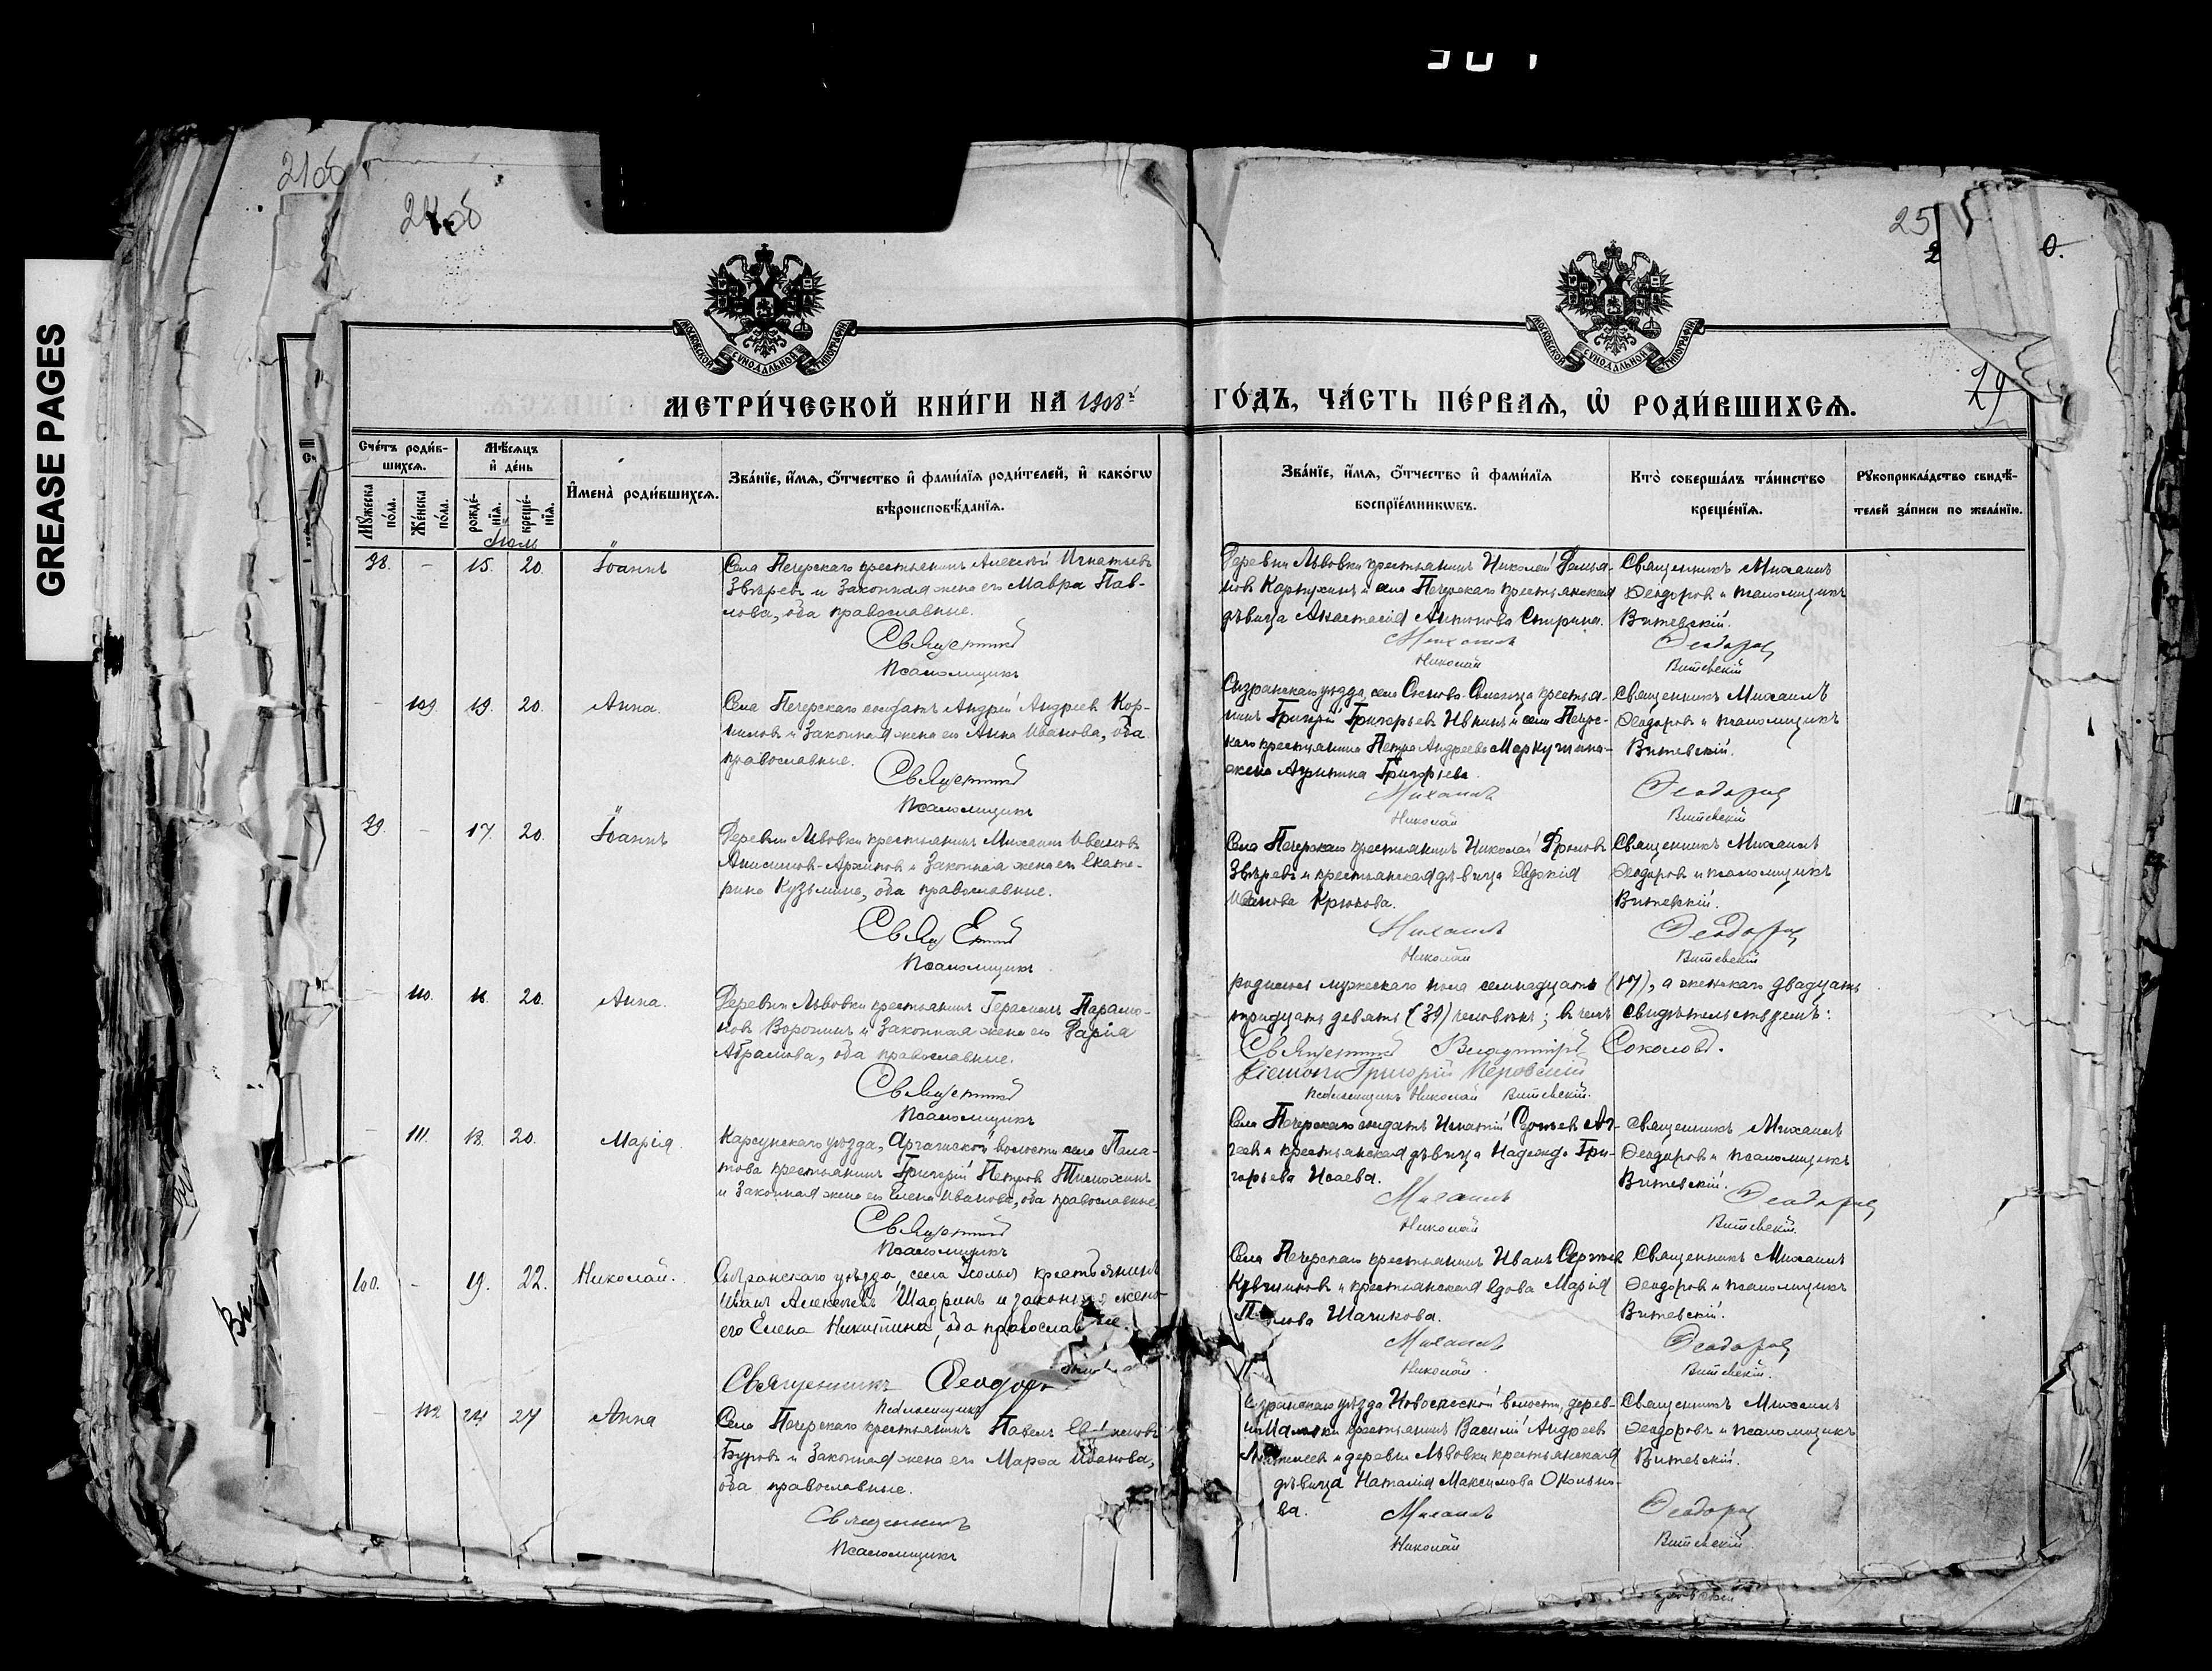 GREASE PAGES
21об
24об
25
МОСКОВСКОЙ СУНОДАЛЬНОЙ ТИПОГРАФІИ
МОСКОВСКОЙ СУНОДАЛЬНОЙ ТИПОГРАФІИ
МЕТРИ́ЧЕСКОЙ КНИ́ГИ НА 1908й ГО́ДЪ, ЧА́СТЬ ПЕ́РВАѦ, Ѡ҆ РОДИ́ВШИХСѦ.
Сче́тъ роди́в-
шихсѧ.
Мꙋ́жеска по́ла.
Же́нска по́ла.
Мѣ́сѧцъ
и҆ де́нь
рожде́-
нїѧ.
креще́-
нїѧ.
И҆мена̀ роди́вшихсѧ.
Зва́нїе, и҆́мѧ, ѻ҆́тчество и҆ фами́лїѧ роди́телей, и҆ како́гѡ
вѣроисповѣ́данїѧ.
Зва́нїе, и҆́мѧ, ѻ҆́тчество и҆ фами́лїѧ
воспрїе́мникѡвъ.
Кто̀ соверша́лъ та́инство
креще́нїѧ.
Рꙋкоприкла́дство свидѣ́-
телей за́писи по жела́нїю.
Іюль
98. - 15. 20. Іоаннъ
Села Печерскаго крестьянинъ Алексѣй Игнатьевъ
Звѣревъ и законная жена его Мавра Пав-
лова, оба православные.
Священникъ
Псаломщикъ
Деревни Львовки крестьянинъ Николай
Карпухинъ и села Печерскаго крестьянская
дѣвица Анастасія Антипова Спирина.
Михаилъ
Николай
Священникъ Михаилъ
Ѳеодоровъ и псаломщикъ
Витевскій.
Ѳеодоровъ
Витевскій
- 109. 19. 20. Анна.
Села Печерскаго солдатъ Андрей Андреевъ Кор-
ниловъ и законная жена его Анна Иванова, оба
православные.
Священникъ
Псаломщикъ
Сызранскаго уѣзда, села крестья-
нинъ Григорій Григорьевъ Ивнинъ и села Печер-
скаго крестьянина Петра Андреева Маркушина
жена Агрипина Григорьева.
Михаилъ
Николай
Священникъ Михаилъ
Ѳеодоровъ и псаломщикъ
Витевскій.
Ѳеодоровъ
Витевскій
99. - 17. 20. Іоаннъ
Деревни Львовки крестьянинъ Михаилъ Ивановъ
Анисимовъ-Архиповъ и законная жена его Екате-
рина Кузьмина, оба православные.
Священникъ
Псаломщикъ
Села Печерскаго крестьянинъ Николай Фроловъ
Звѣревъ и крестьянская дѣвица Евдокія
Иванова Крюкова.
Михаилъ
Николай
Священникъ Михаилъ
Ѳеодоровъ и псаломщикъ
Витевскій.
Ѳеодоровъ
Витевскій
110. 18. 20. Анна.
Деревни Львовки крестьянинъ Герасимъ Парамо-
новъ Воронинъ и законная жена его Дарія
Абрамова, оба православные.
Священникъ
Псаломщикъ
родилось мужескаго пола семнадцать (17), а женскаго двадцать
тридцать девять (39) человѣкъ; въ чемъ свидѣтельствуемъ:
Священникъ Владиміръ Соколовъ.
Діаконъ Григорій Перовскій
Псаломщикъ Николай Витевскій.
- 111. 18. 20. Марія.
Карсунскаго уѣзда, Аргашской волости села Пала-
това крестьянинъ Григорій Петровъ Тимохинъ
и законная жена его Елена Иванова, оба православные.
Священникъ
Псаломщикъ
Села Печерскаго солдатъ Игнатій
и крестьянская дѣвица Надежда Гри-
горьева Исаева.
Михаилъ
Николай
Священникъ Михаилъ
Ѳеодоровъ и псаломщикъ
Витевскій.
Ѳеодоровъ
Витевскій.
100. - 19. 22. Николай.
Сызранскаго уѣзда, села Усолья крестьянинъ
Иванъ Алексѣевъ Шадринъ и законная жена
его Елена Никитина, оба православные.
Священникъ Ѳеодоровъ
Псаломщикъ
Села Печерскаго крестьянинъ Иванъ Сергѣевъ
Кувшиновъ и крестьянская вдова Марія
Павлова Шачикова.
Михаилъ
Николай
Священникъ Михаилъ
Ѳеодоровъ и псаломщикъ
Витевскій.
Ѳеодоровъ
Витевскій.
- 112 24 27 Анна
Села Печерскаго крестьянинъ Павелъ
Буровъ и законная жена его Марѳа Иванова,
оба православные.
Священникъ
Псаломщикъ
Сызранскаго уѣзда Новоспасской волости, дерев-
ни крестьянинъ Василій Андреевъ
и деревни Львовки крестьянская
дѣвица Наталія Максимова Окольно-
ва.
Михаилъ
Николай
Священникъ Михаилъ
Ѳеодоровъ и псаломщикъ
Витевскій.
Ѳеодоровъ
Витевскій.